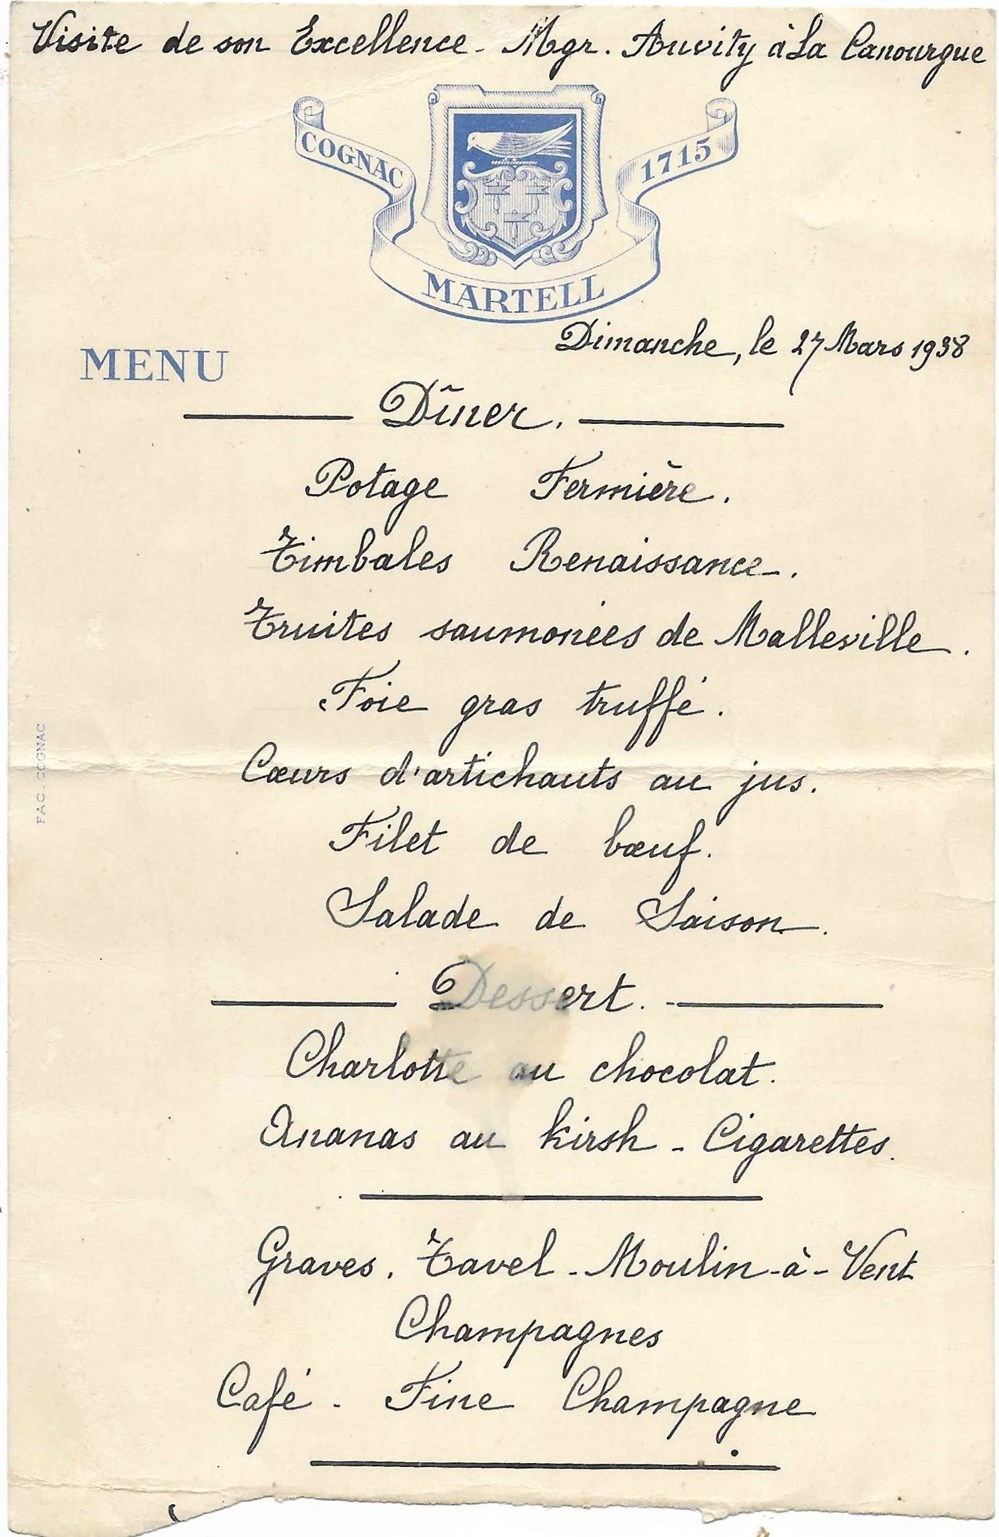 Visite de son Excellence - Mgr. Auvity à La Canourgue
COGNAC
1715
MARTELL
Dimanche, le 27 Mars 1938
MENU
Dîner.
Potage Fermière.
Timbales Renaissance.
Truites saumonées de Malleville.
Foie gras truffé.
Cœurs d'artichauts au jus.
Filet de bœuf.
Salade de Saison.
Dessert.
Charlotte au chocolat.
Ananas au kirsh - Cigarettes.
Graves. Tavel - Moulin-à-Vent
Champagnes
Café - Fine Champagne
FAC. COGNAC